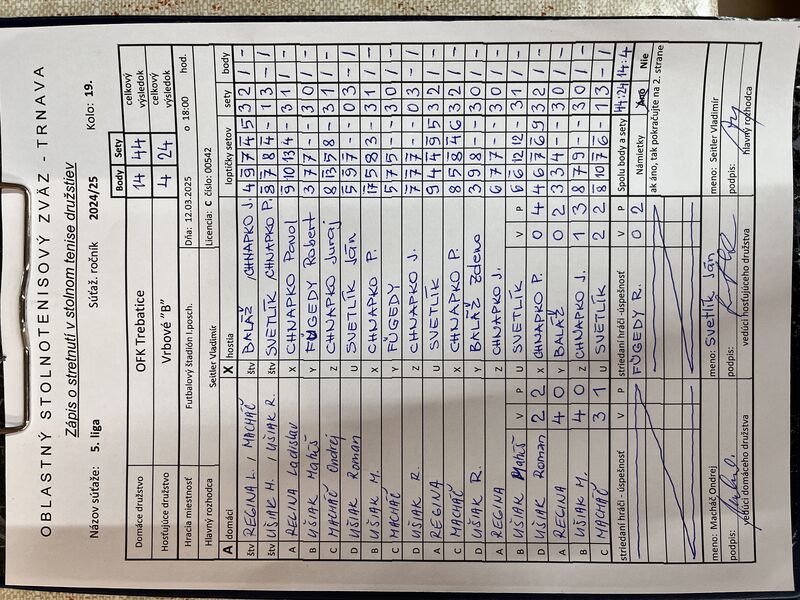 OBLASTNÝ STOLNOTENISOVÝ ZVÄZ - TRNAVA
Zápis o stretnutí v stolnom tenise družstiev
Názov súťaže: 5. liga Súťaž. ročník 2024/25 Kolo: 19.
Body Sety
Domáce družstvo OFK Trebatice 14 44 celkový výsledok
Hosťujúce družstvo Vrbové "B" 4 24 celkový výsledok
Hracia miestnosť Futbalový štadión I.posch. Dňa: 12.03.2025 o 18:00 hod.
Hlavný rozhodca Seitler Vladimír Licencia: C číslo: 00542
A domáci X hostia loptičky setov sety body
štv REGINA L. / MACHÁČ štv BALÁŽ / CHNAPKO J. 4 9 7 4 5 3 2 1 -
štv UŠIAK M. / UŠIAK R. štv SVETLÍK / CHNAPKO P. 8 7 8 4 - 1 3 - 1
A REGINA Ladislav X CHNAPKO Pavol 9 10 13 4 - 3 1 1 -
B UŠIAK Matúš Y FÜGEDY Robert 3 7 7 - - 3 0 1 -
C MACHÁČ Ondrej Z CHNAPKO Juraj 8 13 5 8 - 3 1 1 -
D UŠIAK Roman U SVETLÍK Ján 5 9 7 - - 0 3 - 1
B UŠIAK M. X CHNAPKO P. 17 5 8 3 - 3 1 1 -
C MACHÁČ Y FÜGEDY 5 7 5 - - 3 0 1 -
D UŠIAK R. Z CHNAPKO J. 7 7 7 - - 0 3 - 1
A REGINA U SVETLÍK 9 4 4 9 5 3 2 1 -
C MACHÁČ X CHNAPKO P. 8 5 8 4 6 3 2 1 -
D UŠIAK R. Y BALÁŽ Zdeno 3 9 8 - - 3 0 1 -
A REGINA Z CHNAPKO J. 6 7 7 - - 3 0 1 -
B UŠIAK Matúš V P U SVETLÍK V P 6 6 12 12 - 3 1 1 -
D UŠIAK Roman 2 2 X CHNAPKO P. 0 4 4 6 7 6 9 3 2 1 -
A REGINA 4 0 Y BALÁŽ 0 2 3 3 4 - - 3 0 1 -
B UŠIAK M. 4 0 Z CHNAPKO J. 1 3 8 7 9 - - 3 0 1 -
C MACHÁČ 3 1 U SVETLÍK 2 2 8 10 7 6 - 1 3 - 1
striedaní hráči - úspešnosť V P striedaní hráči -úspešnosť V P Spolu body a sety 44:24 14:4
FÜGEDY R. 0 2 Námietky Áno Nie
ak áno, tak pokračujte na 2. strane
meno: Macháč Ondrej meno: Svetlík Ján meno: Seitler Vladimír
podpis: podpis: podpis:
vedúci domáceho družstva vedúci hosťujúceho družstva hlavný rozhodca